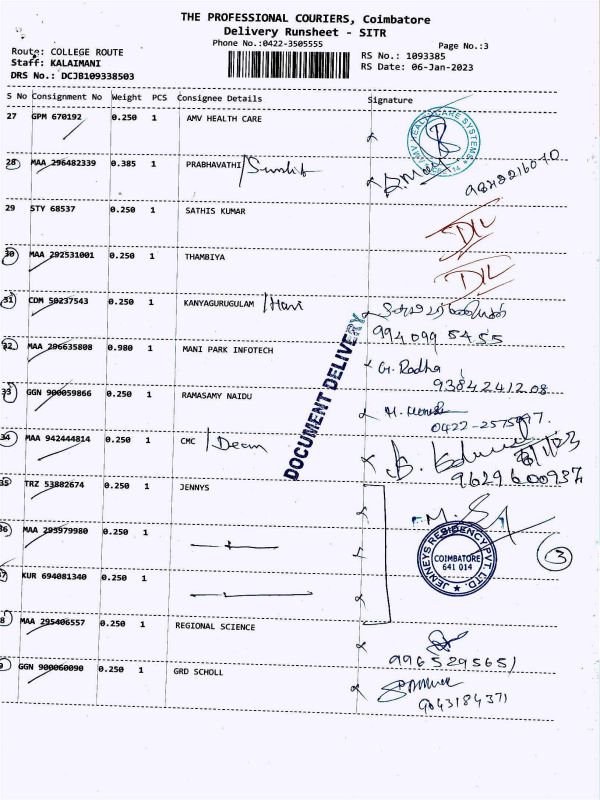 THE PROFESSIONAL COURIERS, Coimbatore
Delivery Runsheet - SITR
Phone No.:0422-3505555
Page No.:3
Route: COLLEGE ROUTE
Staff: KALAIMANI
DRS No.: DCJB109338503
RS No.: 1093385
RS Date: 06-Jan-2023
S No Consignment No Weight PCS Consignee Details Signature
27 GPM 670192 0.250 1 AMV HEALTH CARE
AMV HEALTHCARE SYSTEMS
28 MAA 296482339 0.385 1 PRABHAVATHI
9842216070
29 STY 68537 0.250 1 SATHIS KUMAR
DIL
30 MAA 292531001 0.250 1 THAMBIYA
DIL
31 CDM 50237543 0.250 1 KANYAGURUGULAM /Hari
994 099 5455
32 MAA 296635808 0.980 1 MANI PARK INFOTECH
G. Radha
9384241208
33 GGN 900059866 0.250 1 RAMASAMY NAIDU
DOCUMENT DELIVERY
34 MAA 942444814 0.250 1 CMC / Dean
9629600937
35 TRZ 53882674 0.250 1 JENNYS
JENNEYS RESIDENCY PVT. LTD.
COIMBATORE
641 014
3
36 MAA 295979980 0.250 1
37 KUR 694081340 0.250 1
8 MAA 295406557 0.250 1 REGIONAL SCIENCE
9965295651
9 GGN 900060090 0.250 1 GRD SCHOLL
9043184371